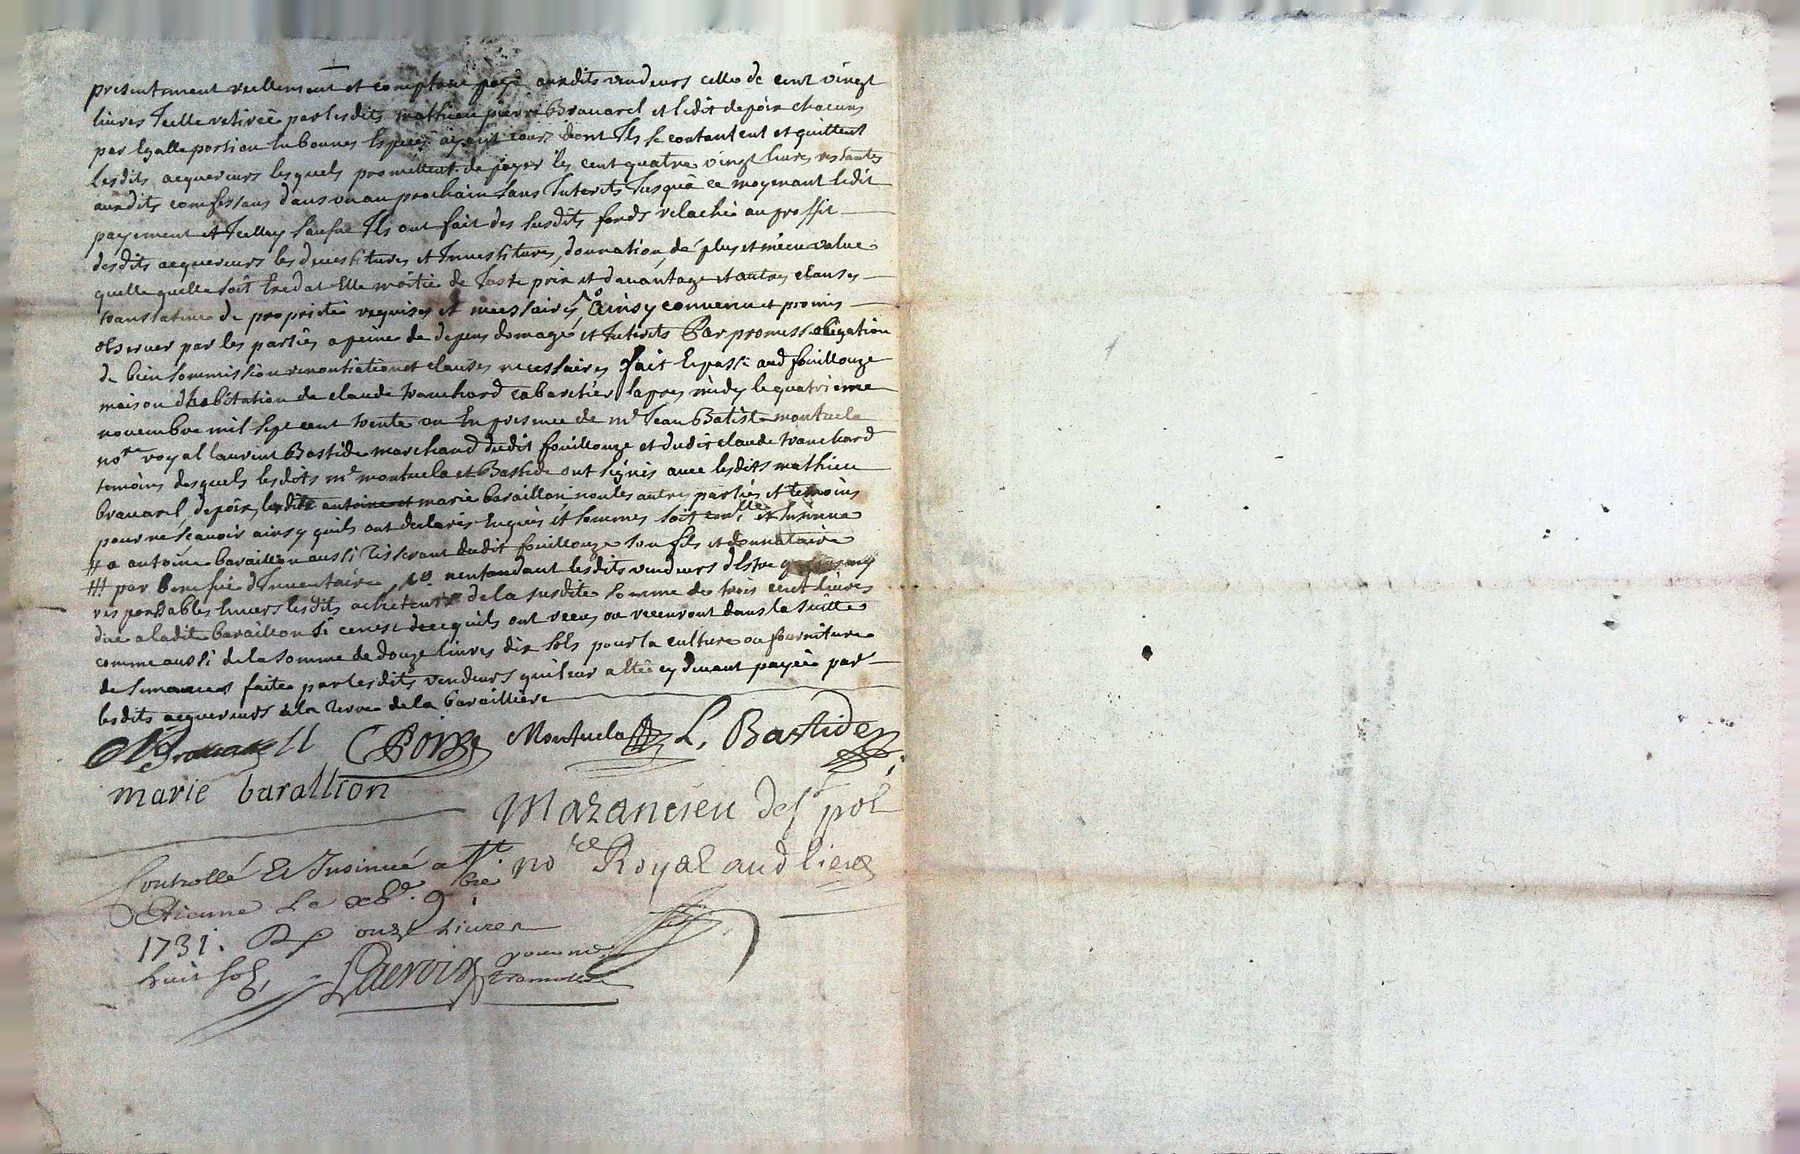 presentement reellement et comptant payé auxdits vendeurs celle de cent vingt
livres Icelle retirée par lesdits mathieu pierre Brauard et ledit depoix chacuns
par Egalle portion En bonnes Especes ayant cours dont Ils se contantent et quittent
lesdits acquereurs lesquels promettent de payer les cent quatre vingt livres restantes
auxdits confessans dans un an prochain sans Interets Jusqu'a ce moyenant ledit
payement et Icelluy sauf Ils ont fait des susdits fonds relachée au proffit
desdits acquereurs les devestitures et Investitures, donnation, de plus et mieu value
quelle quelle soit Exedat Elle moitié de Juste prix et davantage et autres clauses
translatives de proprieté requises et necessaires Ainsy convenu et promis
observer par les parties a peine de depens domages et Interets Par promesse obligation
de bien soumission renontiation et clauses necessaires fait Et passé aud fouillouze
maison d'habitation de claude tranchard cabaretier lapres midy le quatrieme
novembre mil sept cent trente un En presence de mr Jean Batiste montuela
nore royal laurent Bastide marchand dudit fouillouze et dudit claude tranchard
temoins desquels lesdits mr montuela et Bastide ont signés avec lesdits mathieu
brauard, depoix, ledit antoine et marie baraillon non les autres parties et temoins
pour ne sçavoir ainsy quils ont declarés Enquis et sommes soit conlle et Insinue
# a antoine baraillon aussi tisserant dudit fouillouze son fils et donnataire
## par beneficé d'Inventaire, nentandant lesdits vendeurs d'Estre
responsables Envers lesdits acheteurs de la susdite somme de trois cent livres
due a ladite baraillon si cenest de ce quils ont receu ou receuront dans la suitte
comme aussi de la somme de douze livres dix sols pour la culture ou fourniture
de semances faites par lesdits vendeurs qui leur a eté cy devant payée par
lesdits acquereurs a la terre de la baraillière
M Brauard Depoix Montuela L. Bastide
marie barallion
Mazancieu des
nore Royal aud lieu
Controllé Et Insinué a St
Etienne Le 9bre
1731. R onze Livres
huit sols Lacroix